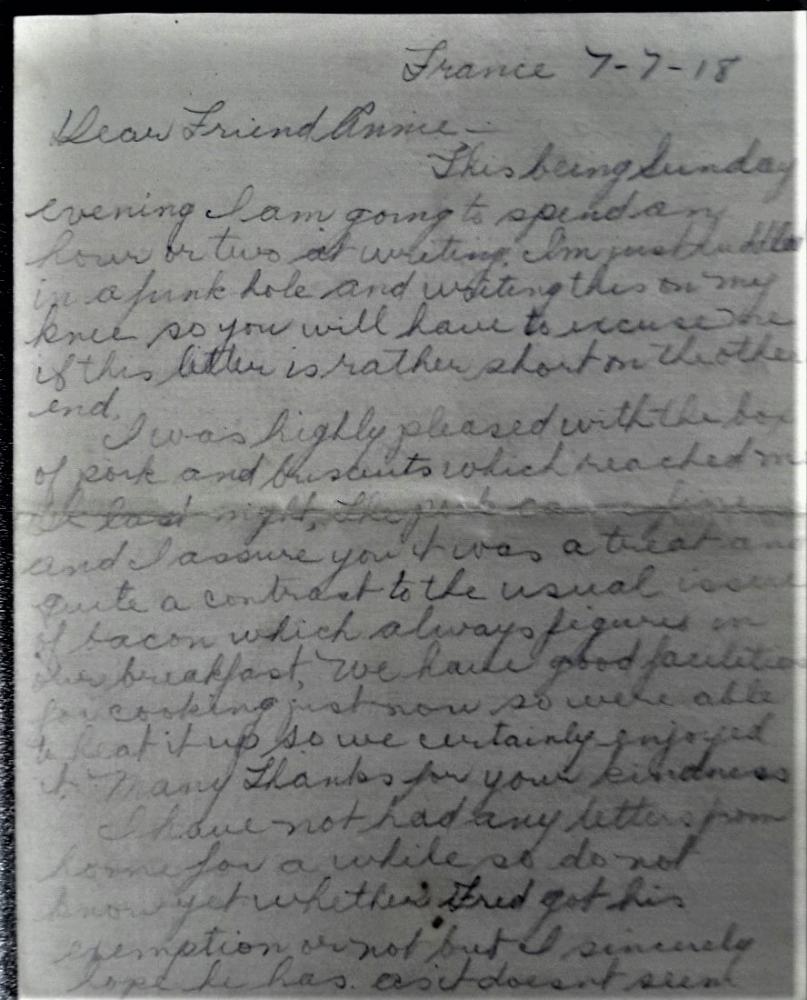 France 7-7-18
Dear Friend Annie -
This being Sunday
evening I am going to spend an
hour or two at writing. Im just huddled
in a funk hole and writing this on my
knee so you will have to excuse me
if this letter is rather short on the other
end.
I was highly pleased with the box
of pork and biscuits which reached me
last night, The pork
and I assure you it was a treat and
quite a contrast to the usual issue
of bacon which always figures in
our breakfast, We have good facilities
for cooking just now so were able
to heat it up so we certainly enjoyed
it. Many Thanks for your kindness
I have not had any letters from
home for a while so do not
know yet whether Fred got his
exemption or not but I sincerely
hope he has. as it doesnt seem